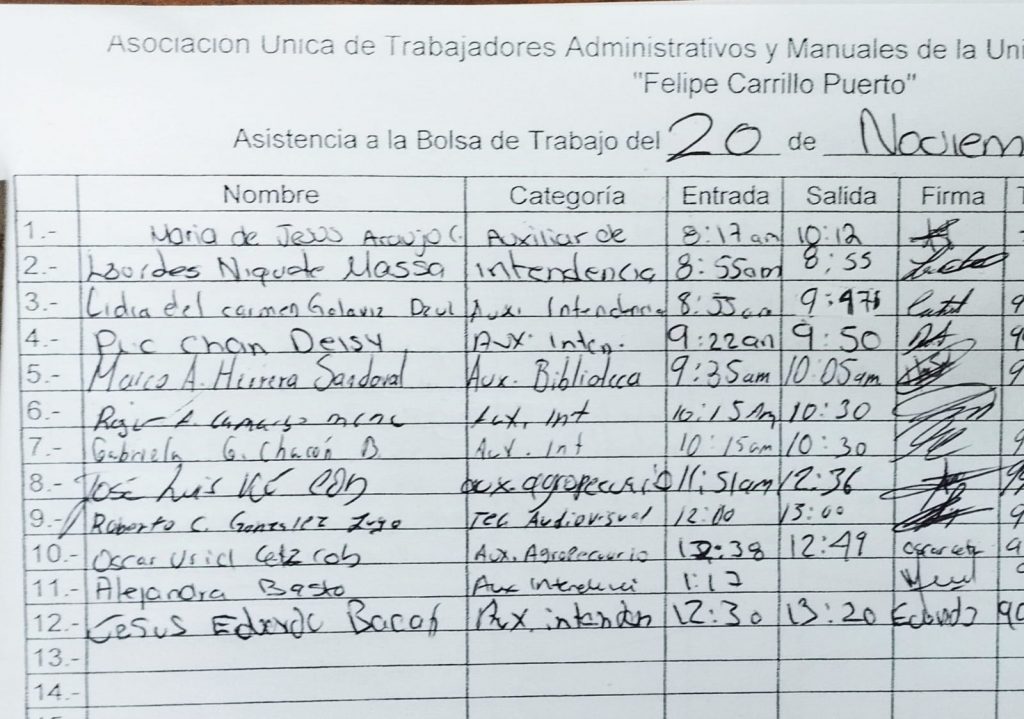 Asociacion Unica de Trabajadores Administrativos y Manuales de la Uni
"Felipe Carrillo Puerto"
Asistencia a la Bolsa de Trabajo del 20 de Noviem
Nombre Categoría Entrada Salida Firma
1.- Maria de Jesus Araujo C. Auxiliar de 8:17 am 10:12
2.- Lourdes Niquete Massa intendencia 8:55am 8:55
3.- Lidia del carmen Galaviz Dzul Aux. Intendencia 8:55am
4.- Puc Chan Deisy Aux. Inten. 9:22am 9:50
5.- Marco A. Herrera Sandoval Aux. Biblioteca 9:35am 10:05am
6.- Aux. Int 10:15Am 10:30
7.- Gabriela G. Chacón B. Aux. Int 10:15am 10:30
8.- José Luis aux. agropecuario 11:51am 12:36
9.- Roberto C. Gonzalez Lugo Tec Audiovisual 12:00 13:00
10.- Oscar Uriel Cetz cob Aux. Agropecuario 12:38 12:49
11.- Alejandra Basto Aux 1:17
12.- Jesus Aux. intenden 12:30 13:20
13.-
14.-